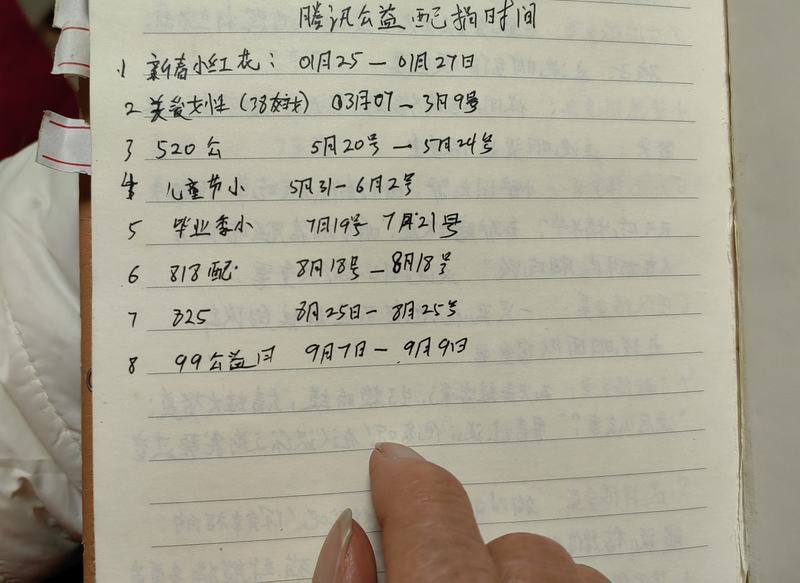 腾讯公益配捐时间
1 新春小红花：01月25 — 01月27日
2 关爱女性（38女战）03月07 — 3月9号
3 520公 5月20号 — 5月24号
4 儿童节小 5月31 — 6月2号
5 毕业季小 7月19号 7月21号
6 818配 8月18号 — 8月18号
7 825 8月25日 — 8月25号
8 99公益日 9月7日 — 9月9日